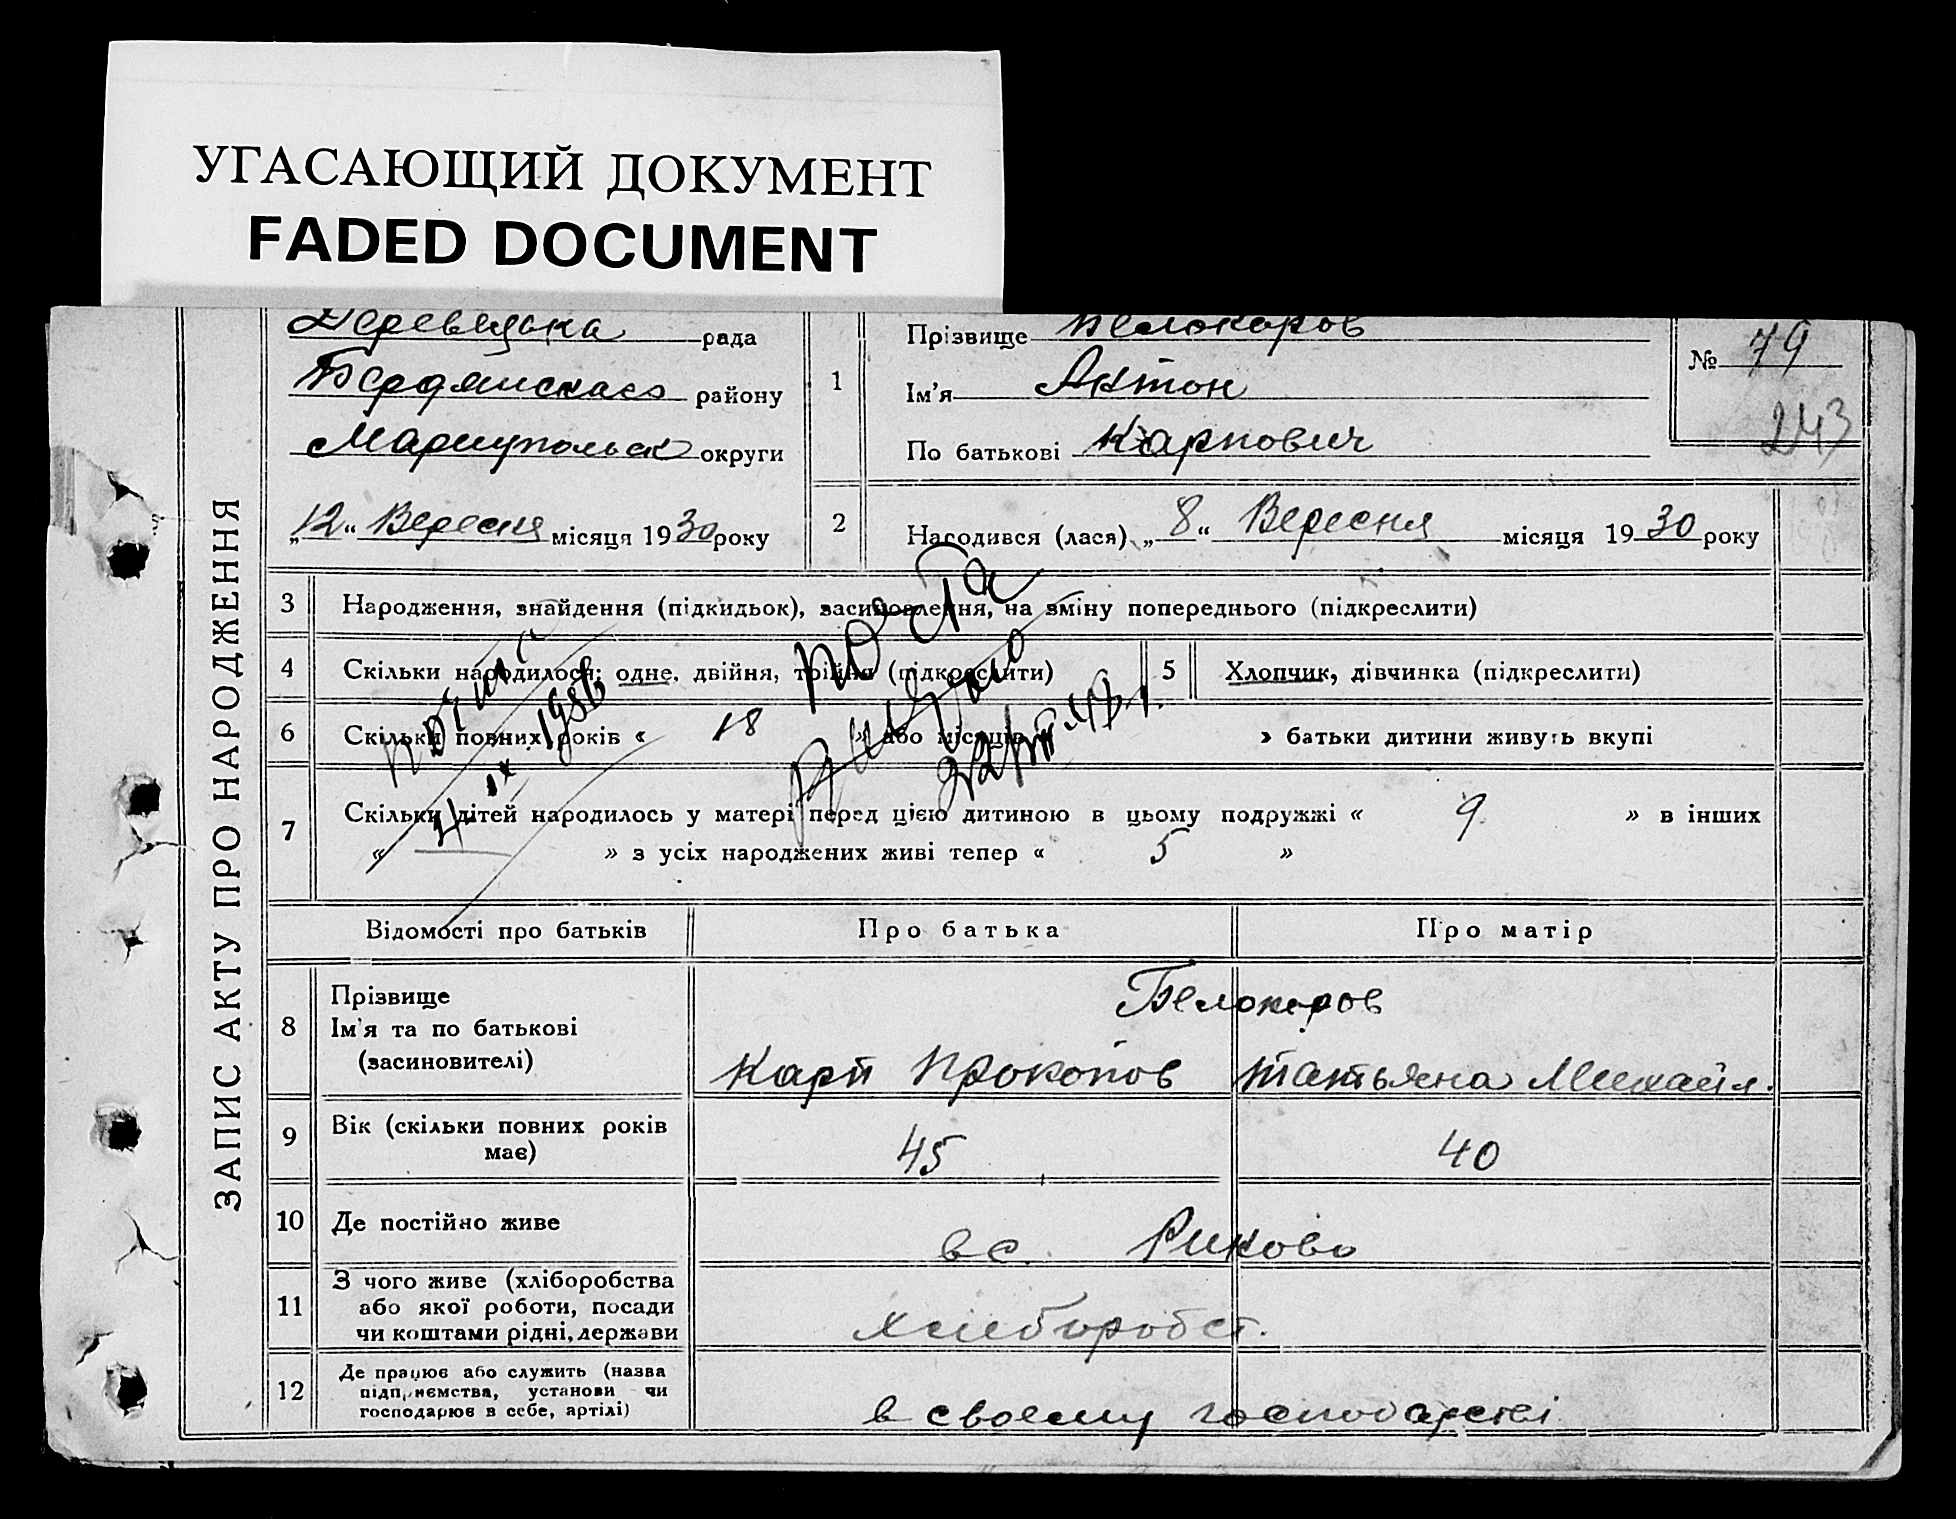 УГАСАЮЩИЙ ДОКУМЕНТ
FADED DOCUMENT
ЗАПИС АКТУ ПРО НАРОДЖЕННЯ
рада
Бердянскаго району
Мариупольск округи
„12“ Вересня місяця 1930 року
1
Прізвище Белокаров
Ім'я Антон
По батькові Карпович
№ 79
243
2
Народився (лася) „8“ Вересня місяця 1930 року
3 Народження, знайдення (підкидьок), засиновлення, на зміну попереднього (підкреслити)
4 Скільки народилося: одне, двійня, трійня (підкреслити)
5 Хлопчик, дівчинка (підкреслити)
6 Скільки повних років « 18 » або місяців » батьки дитини живуть вкупі
7 Скільки дітей народилось у матері перед цією дитиною в цьому подружжі « 9 » в інших
« — » з усіх народжених живі тепер « 5 »
почта
Відомості про батьків Про батька Про матір
8 Прізвище
Ім'я та по батькові
(засиновителі)
Белокаров
Карп Прокопов Татьяна Михайл.
9 Вік (скільки повних років
має)
45 40
10 Де постійно живе
в с. Риково
11 З чого живе (хліборобства
або якої роботи, посади
чи коштами рідні, держави
хлеборобст.
12 Де працює або служить (назва
підприємства, установи чи
господарює в себе, артілі)
в своему господарстві